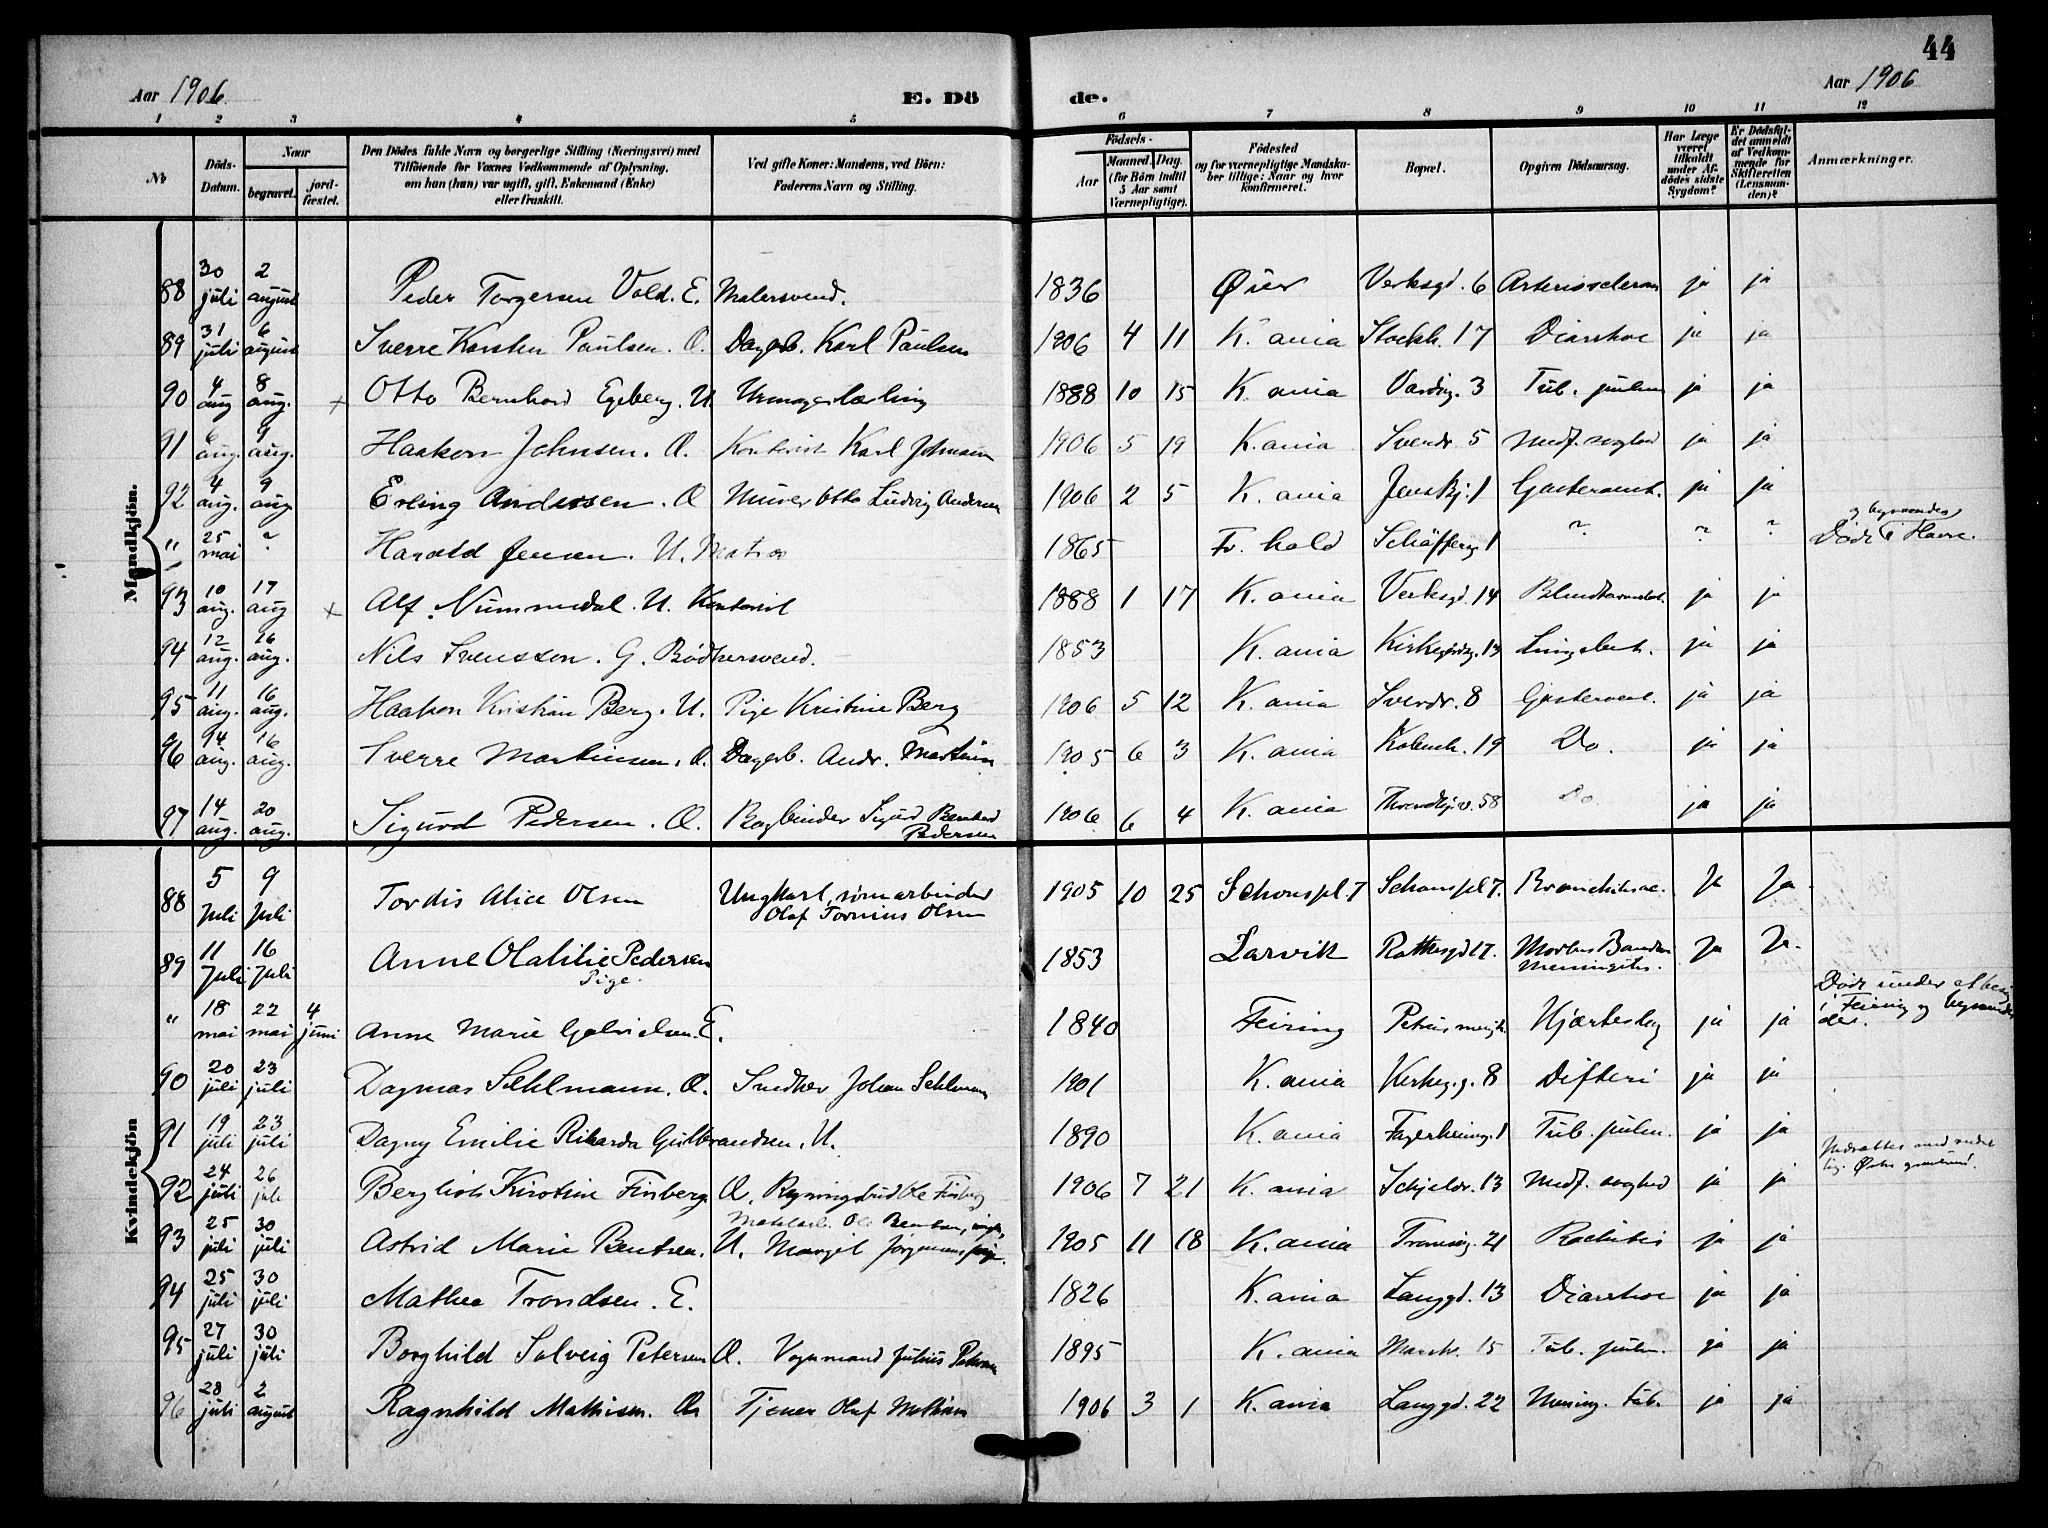 44
Aar 1906. E. Dö de. Aar 1906
1 2 3 4 5 6 7 8 9 10 11 12
No
Döds-Datum.
Naar
begravet. jord-fæstet.
Den Dödes fulde Navn og borgerlige Stilling (Næringsvei) med
Tilföiende for Voxnes Vedkommende af Oplysning,
om han (hun) var ugift, gift, Enkemand (Enke)
eller fraskilt.
Ved gifte Koner: Mandens, ved Börn:
Faderens Navn og Stilling.
Födsels-
Aar
Maaned. Dag.
(for Börn indtil
5 Aar samt
Værnepligtige).
Födested
og for værnepligtige Mandska-
ber tillige: Naar og hvor
konfirmeret.
Bopæl.
Opgiven Dödsaarsag.
Har Læge
været
tilkaldt
under Af-
dödes sidste
Sygdom?
Er Dödsfal-
det anmeldt
af Vedkom-
mende for
Skifteretten
(Lensman-
den)?
Anmærkninger.
Mandkjön.
88 30 juli 2 august Peder Torgersen Vold. E. Malersvend. 1836 Øier Verksgd. 6 ja ja
89 31 juli 6 august Sverre Karsten Paulsen. Æ. Dagarb. Karl Paulsen 1906 4 11 K. ania Stockh. 17 Diarrhoe ja ja
90 4 aug 8 aug. × Otto Bernhard Egeberg. U. Urmagerlærling 1888 10 15 K. ania Vardøg. 3 Tub. pulm ja ja
91 6 aug. 9 aug. Haakon Johnsen. Æ. Kontorist Karl Johnsen 1906 5 19 K. ania Sverdr. 5 Medf. svaghed ja ja
92 4 aug. 9 aug Erling Andersen. Æ Murer Otto Ludvig Andersen 1906 2 5 K. ania Jenskj. 1 Gasteroent. ja ja
" 25 mai ? Harald Jensen. U. Matros 1865 Fr. hald Schäfferg. 1 ? ? ? Døde og begravedes i Havre.
93 10 aug. 17 aug × Alf Nummedal. U. Kontorist 1888 1 17 K. ania Verksgd. 14 ja ja
94 12 aug. 16 aug. Nils Svensson. G. Bødkersvend. 1853 K. ania Kirkegårdsg. 13 Lungebet. ja ja
95 11 aug. 16 aug. Haakon Kristian Berg. U. Pige Kristine Berg 1906 5 12 K. ania Sverdr. 8 Gasteroent. ja ja
96 14 aug. 16 aug. Sverre Martinsen. Æ. Dagarb. Andr. Martinsen 1905 6 3 K. ania Kobenh. 19 Do. ja ja
97 14 aug. 20 aug. Sigurd Pedersen. Æ. Bogbinder Sigurd Bernhard
Pedersen 1906 6 4 K. ania Throndhj.v. 58 Do. ja ja
Kvindekjön
88 5 Juli 9 Juli Tordis Alice Olsen Ungkarl, sømarbeider
Olaf Tornius Olsen 1905 10 25 Schouspl. 7 Schouspl 7. Ja Ja
89 11 Juli 16 Juli Anne Olalilie Pedersen
Pige. 1853 Larvik Rathkesgd 17. Morbus
Meningitis. Ja Ja
" 18 mai 22 mai 4 juni Anne Marie Gabrielsen. E. 1840 Feiring Hjærteslag ja ja Døde under et besøg
i Feiring og begravedes
der.
90 20 juli 23 juli Dagmar Sehlmann. Æ. Snedker Johan Sehlmann 1901 K. ania Kirkeg.g. 8 Difteri ja ja
91 19 juli 23 juli Dagny Emilie Rikarda Gulbrandsen. U. 1890 K. ania Fagerheimg. 1 Tub. pulm. ja ja
92 24 juli 26 juli Bergliot Kirstine Finberg Æ. Ole Finberg 1906 7 21 K. ania Schjeldr. 13 Medf. svaghed ja ja
93 25 juli 30 juli Astrid Marie Bentsen. U. Ole Bentsen,
Margit Jørgensen, pige. 1905 11 18 K. ania Tromsøg. 21 Rachitis ja ja
94 25 juli 30 juli Mathea Trondsen. E. 1826 K. ania Langgd. 13 Diarrhoe ja ja
95 27 juli 30 juli Borghild Solveig Petersen Æ. Vognmand Julius Petersen 1895 K. ania Markv. 15 Tub. pulm. ja ja
96 28 juli 2 august Ragnhild Mathisen. Æ Tjener Olaf Mathisen 1906 3 1 K. ania Langgd. 22 Mening. tub. ja ja